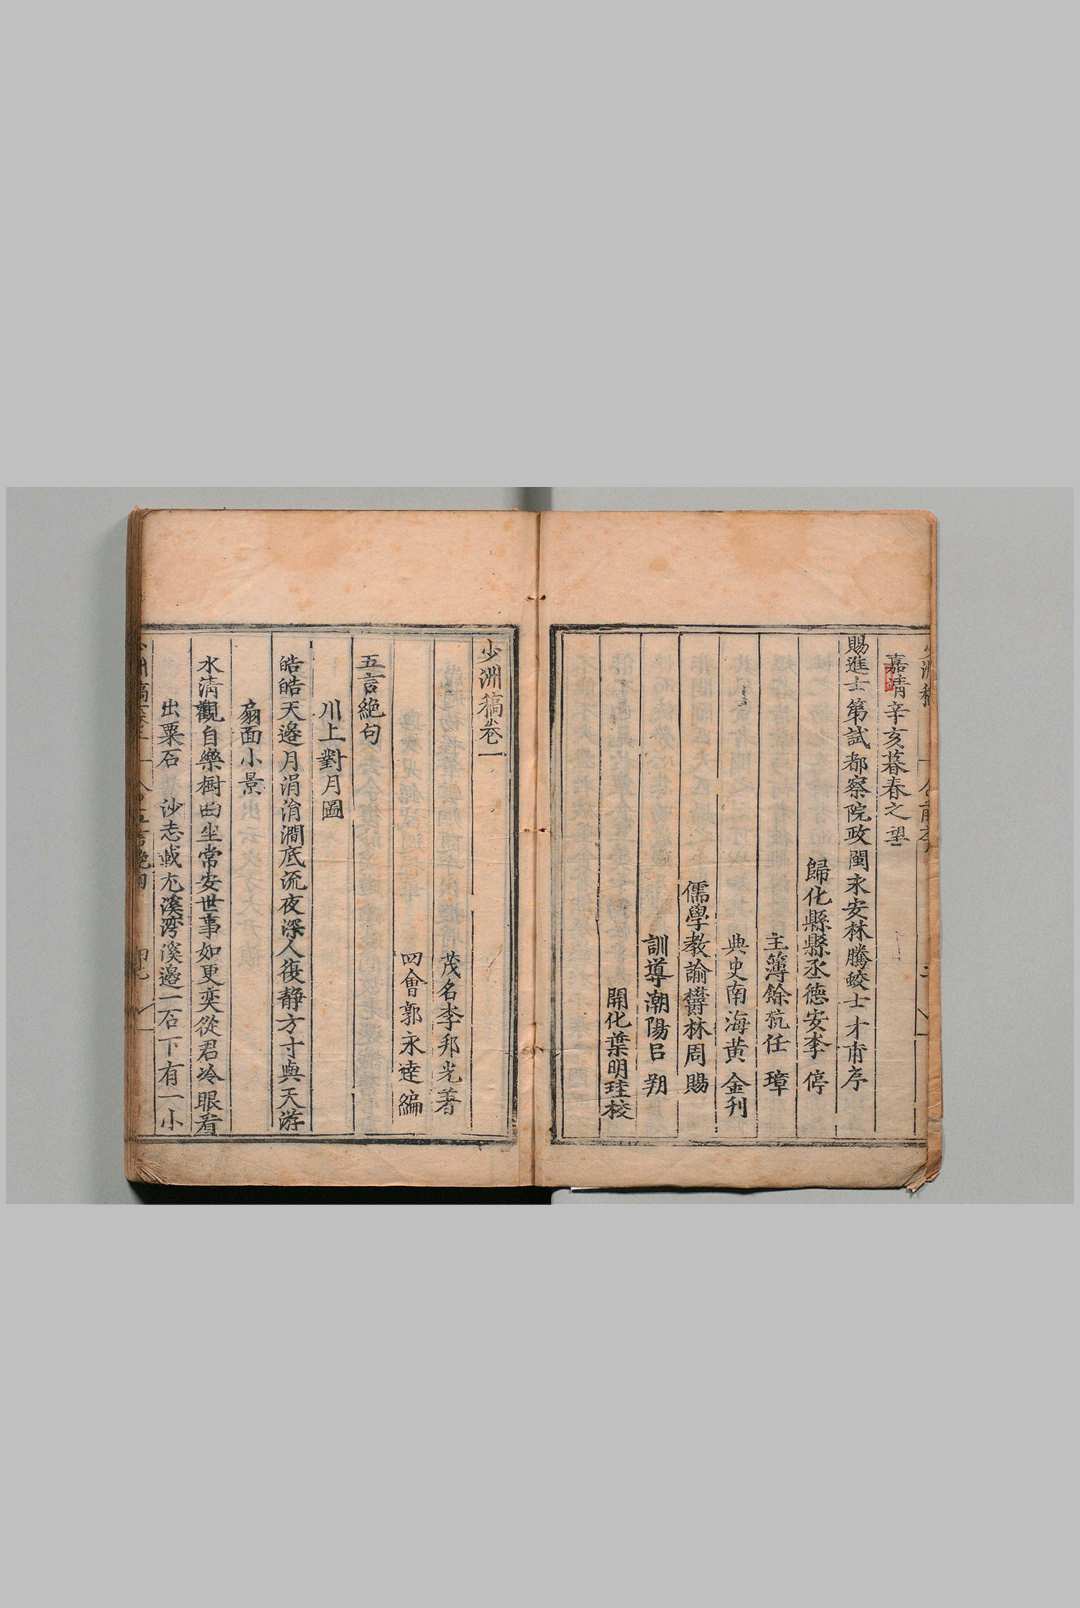 嘉靖辛亥暮春之望
賜進士第試都察院政閩永安林騰蛟士才甫序
歸化縣縣丞德安李 停
主簿餘杭任 璋
典史南海黄 金刋
儒學教諭欝林周 賜
訓導潮陽吕 朔
開化葉明珪校
少洲稿卷一
茂名李邦光著
四會郭永逵編
五言絶句
川上對月圖
皓皓天邉月涓涓澗底流夜深人復静方寸與天游
扇面小景
水清觀自樂樹曲坐常安世事如更奕從君冷眼看
出粟石 沙志載尢溪湾溪邉一石下有一小